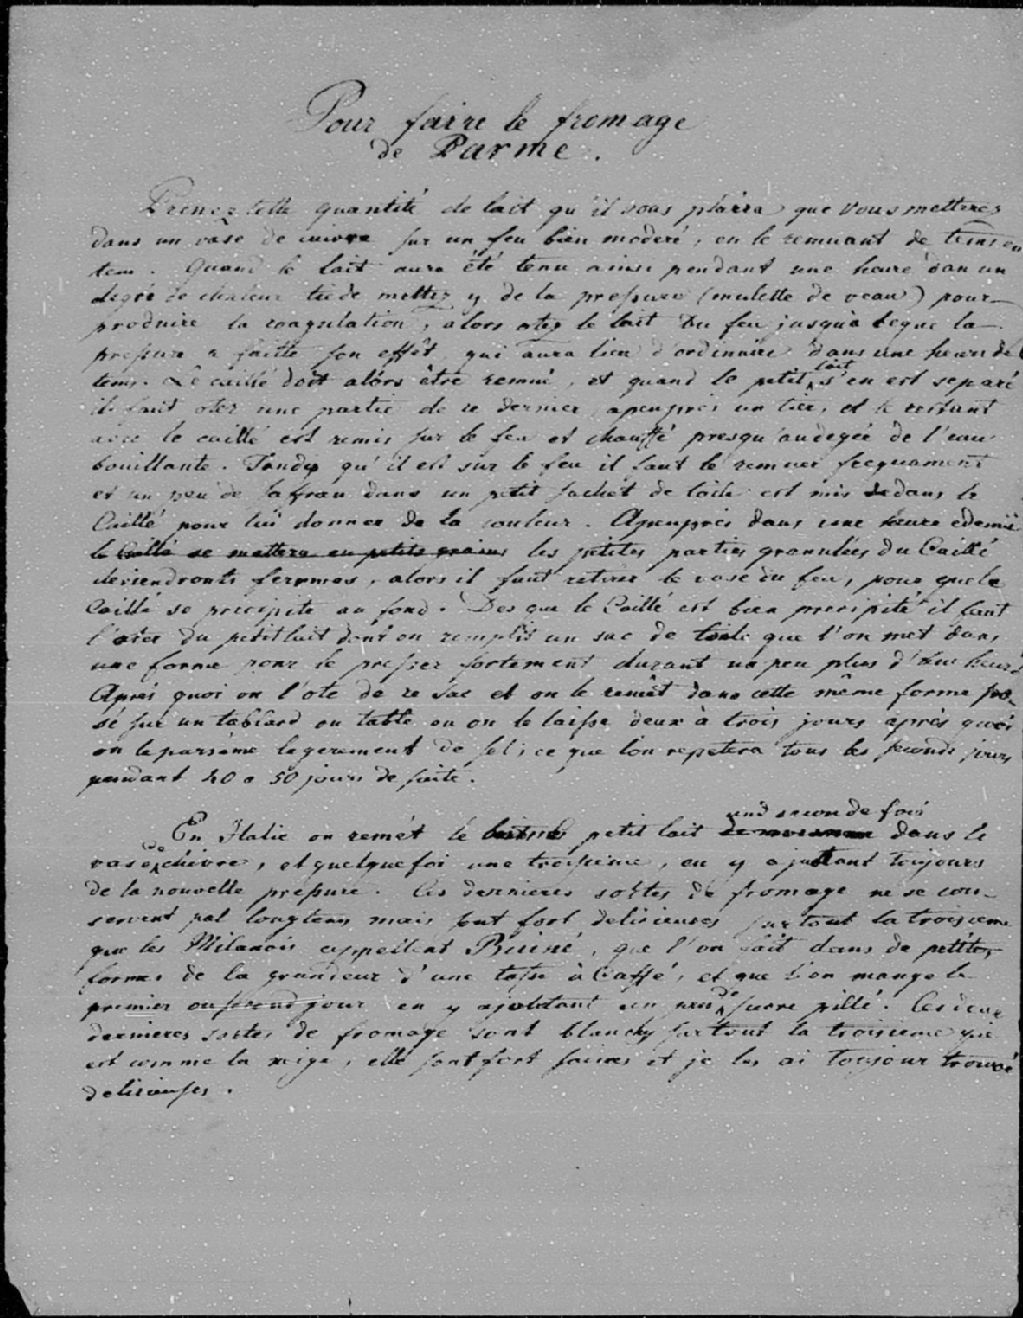 Pour faire le fromage
de Parme.
Prenez telle quantité de lait qu'il vous plaira que vous metterez
dans un vase de cuivre sur un feu bien moderé, en le remuant de tems en
tem. Quand le lait aura été tenu ainsi pendant une heure dan un
degée de chaleur tiede mettez y de la presure (mulette de veau) pour
produire la coagulation, alors otez le lait du feu jusqu'a ceque la
presure a faitte son effêt, qui aura lieu d'ordinaire dans une heure de
tems. Le caillé doit alors être remué, et quand le petit lait s'en est separé
il faut oter une partie de ce dernier, apeuprès un tier, et le restant
avec le caillé est remis sur le feu et chauffé presqu'audegée de l'eau
bouillante. Tandis qu'il est sur le feu il faut le remuer frequament
et un peu de saffran dans un petit sachêt de toile est mis dedans le
Caillé pour lui donner de la couleur. Apeuprès dans une heure edemie
le Caillé se mettera en petits grains les petites parties granulées du Caillé
deviendronts fermes, alors il faut retirer le vase du feu, pour que le
Caillé se precipite au fond. Des que le Caillé est bien precipité il faut
l'oter du petit lait dont on remplis un sac de toile que l'on met dans
une forme pour le presser fortement durant un peu plus d'une heure
Après quoi on l'ote de ce sac et on le remêt dans cette même forme po-
sé sur un tablard ou table ou on le laisse deux à trois jours après quoi
on le parsême legerement de sel; ce que l'on repetera tous les seconds jours
pendant 40 a 50 jours de suite.
En Italie on remét le petit lait une seconde fois dans le
vase de cuivre, et quelque foi une troisieme, en y ajuttant toujours
de la nouvelle presure. Ces dernieres sortes de fromage ne se con-
servent pas longtems mais sont fort delicieuses surtout la troisieme
que les Milanois appellent, que l'on fait dans de petites
formes de la grandeur d'une tasse à Caffé, et que l'on mange le
premier ou second jour en y ajouttant un peu de sucre pillé. Ces deux
dernieres sortes de fromage sont blanches surtout la troisieme qui
est comme la neige, elle sont fort saines et je les ai toujour trouvé
delicieuses.